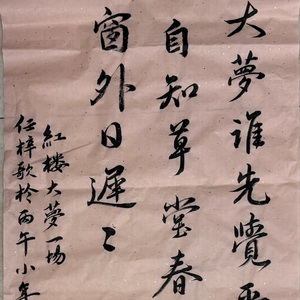 大夢誰先覺平
自知草堂春
窗外日遲〻
紅楼大夢一场
任梓歌於丙午小年